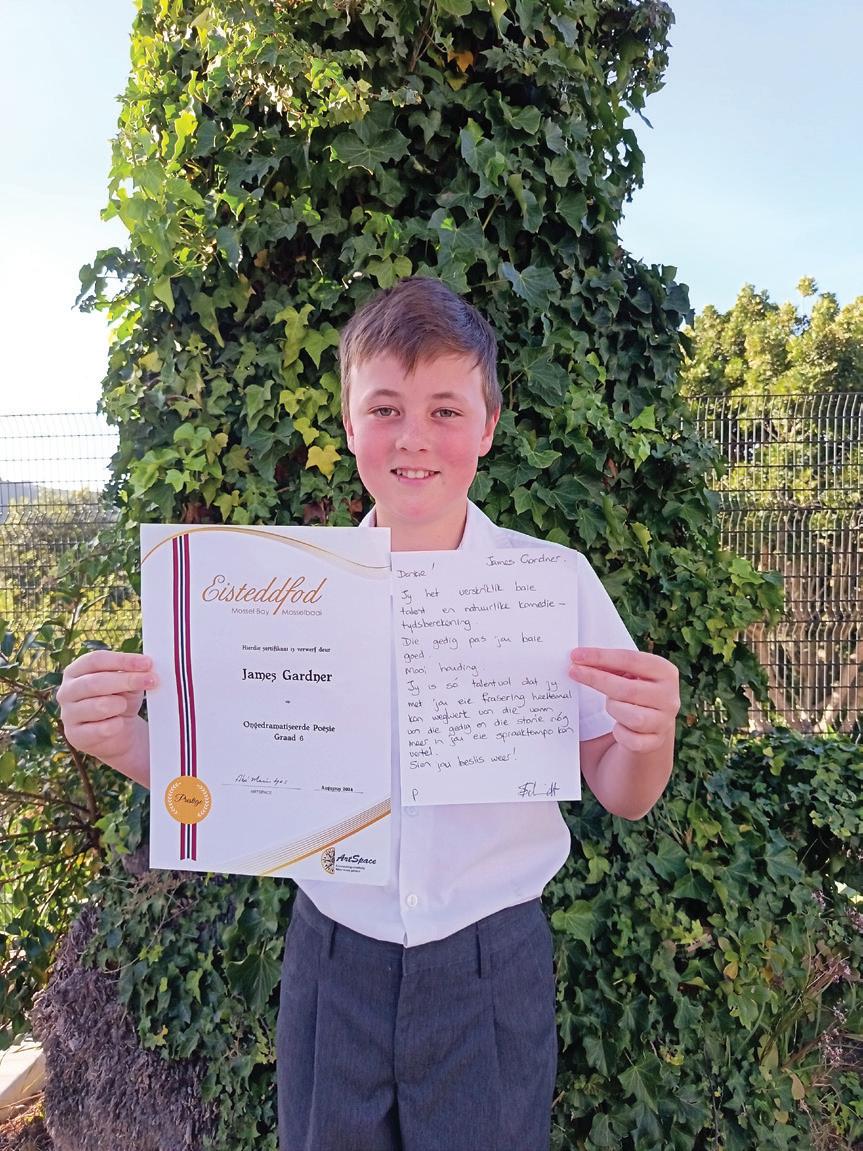 Eisteddfod
Mossel Bay Mosselbaai
Hierdie sertifikaat is verwerf deur
James Gardner
Ongedramatiseerde Poësie
Graad 6
ARTSPACE
Augustus 2024
Prestige
ArtSpace
James Gardner.
Dankie!
Jy het verstriklik baie
talent en natuurlike komedie -
tydsberekening.
Die gedig pas jou baie
goed.
Mooi houding.
Jy is só talentvol dat jy
met jou eie frasering heeltemal
kan wegwerk van die vorm
van die gedig en die storie nóg
meer in jou eie spraaktempo kan
vertel.
Sien jou beslis weer!
P